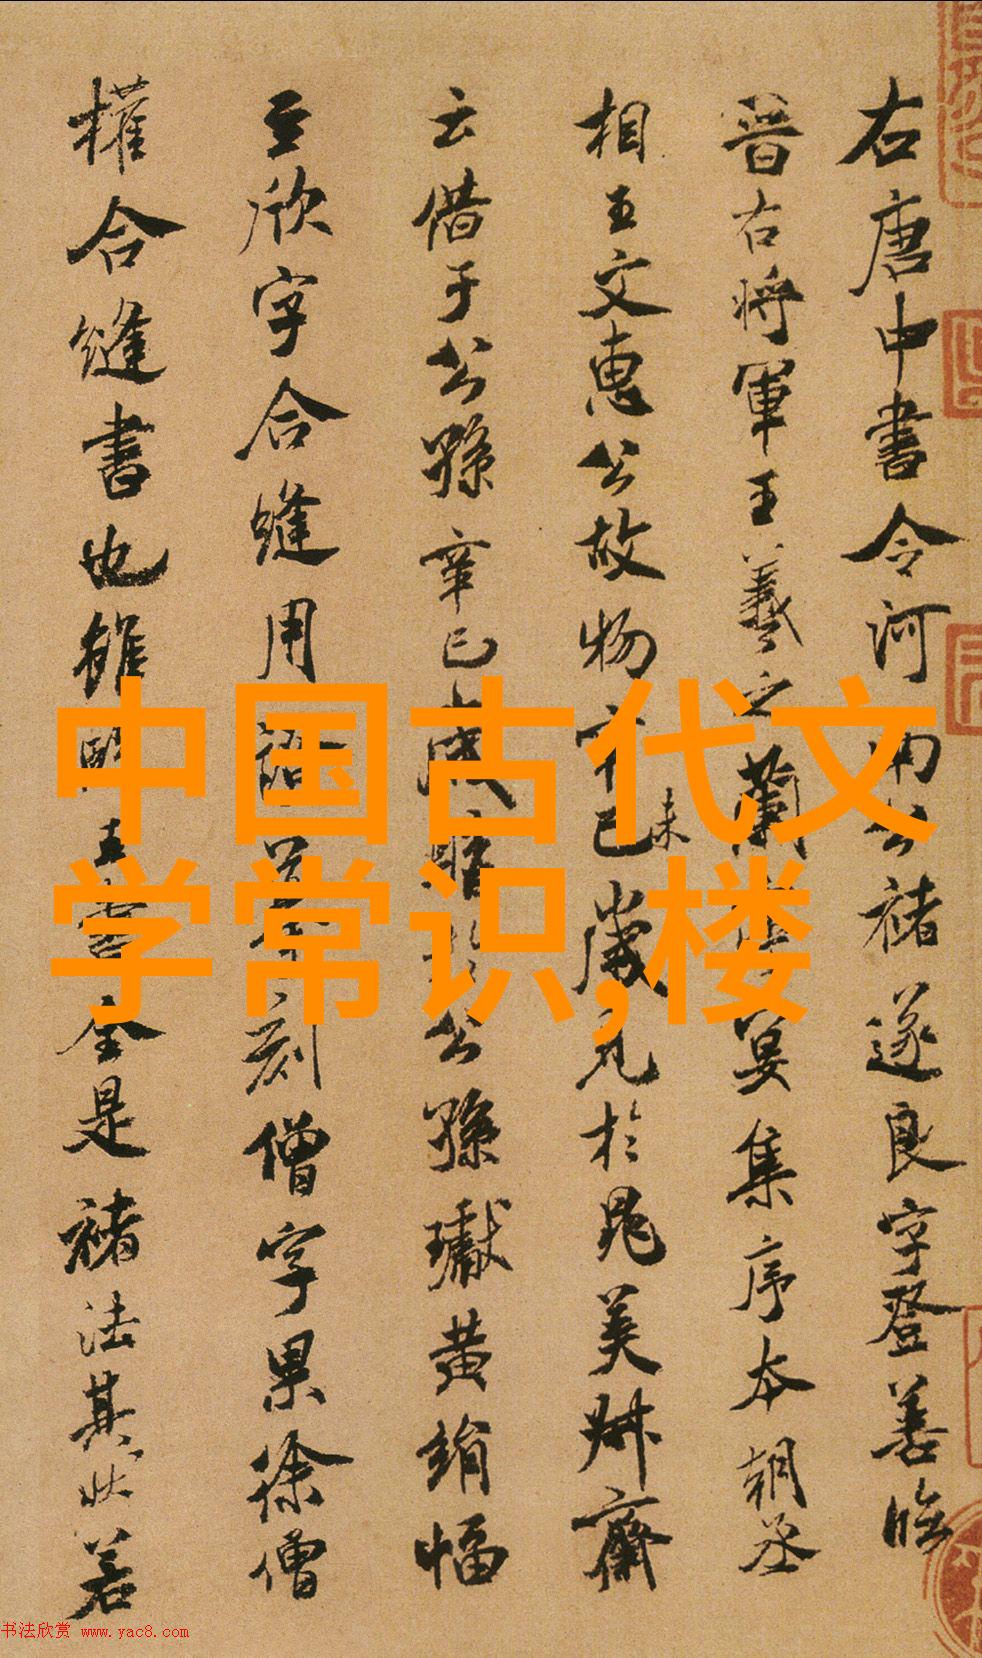 右唐中書令河南公褚遂良字登善臨
晉右將軍王羲之蘭亭宴集序本朝丞
相王文惠公故物辛巳歲見於晁美叔齋
未
云借于公孫辛巳歲購於公孫瓛黄絹幅
至欣字合縫用證摹刻僧字果徐僧
權合縫書也雖臨王書全是褚法其狀若
中国古代文
学常识,楼
书法欣赏 www.yac8.com